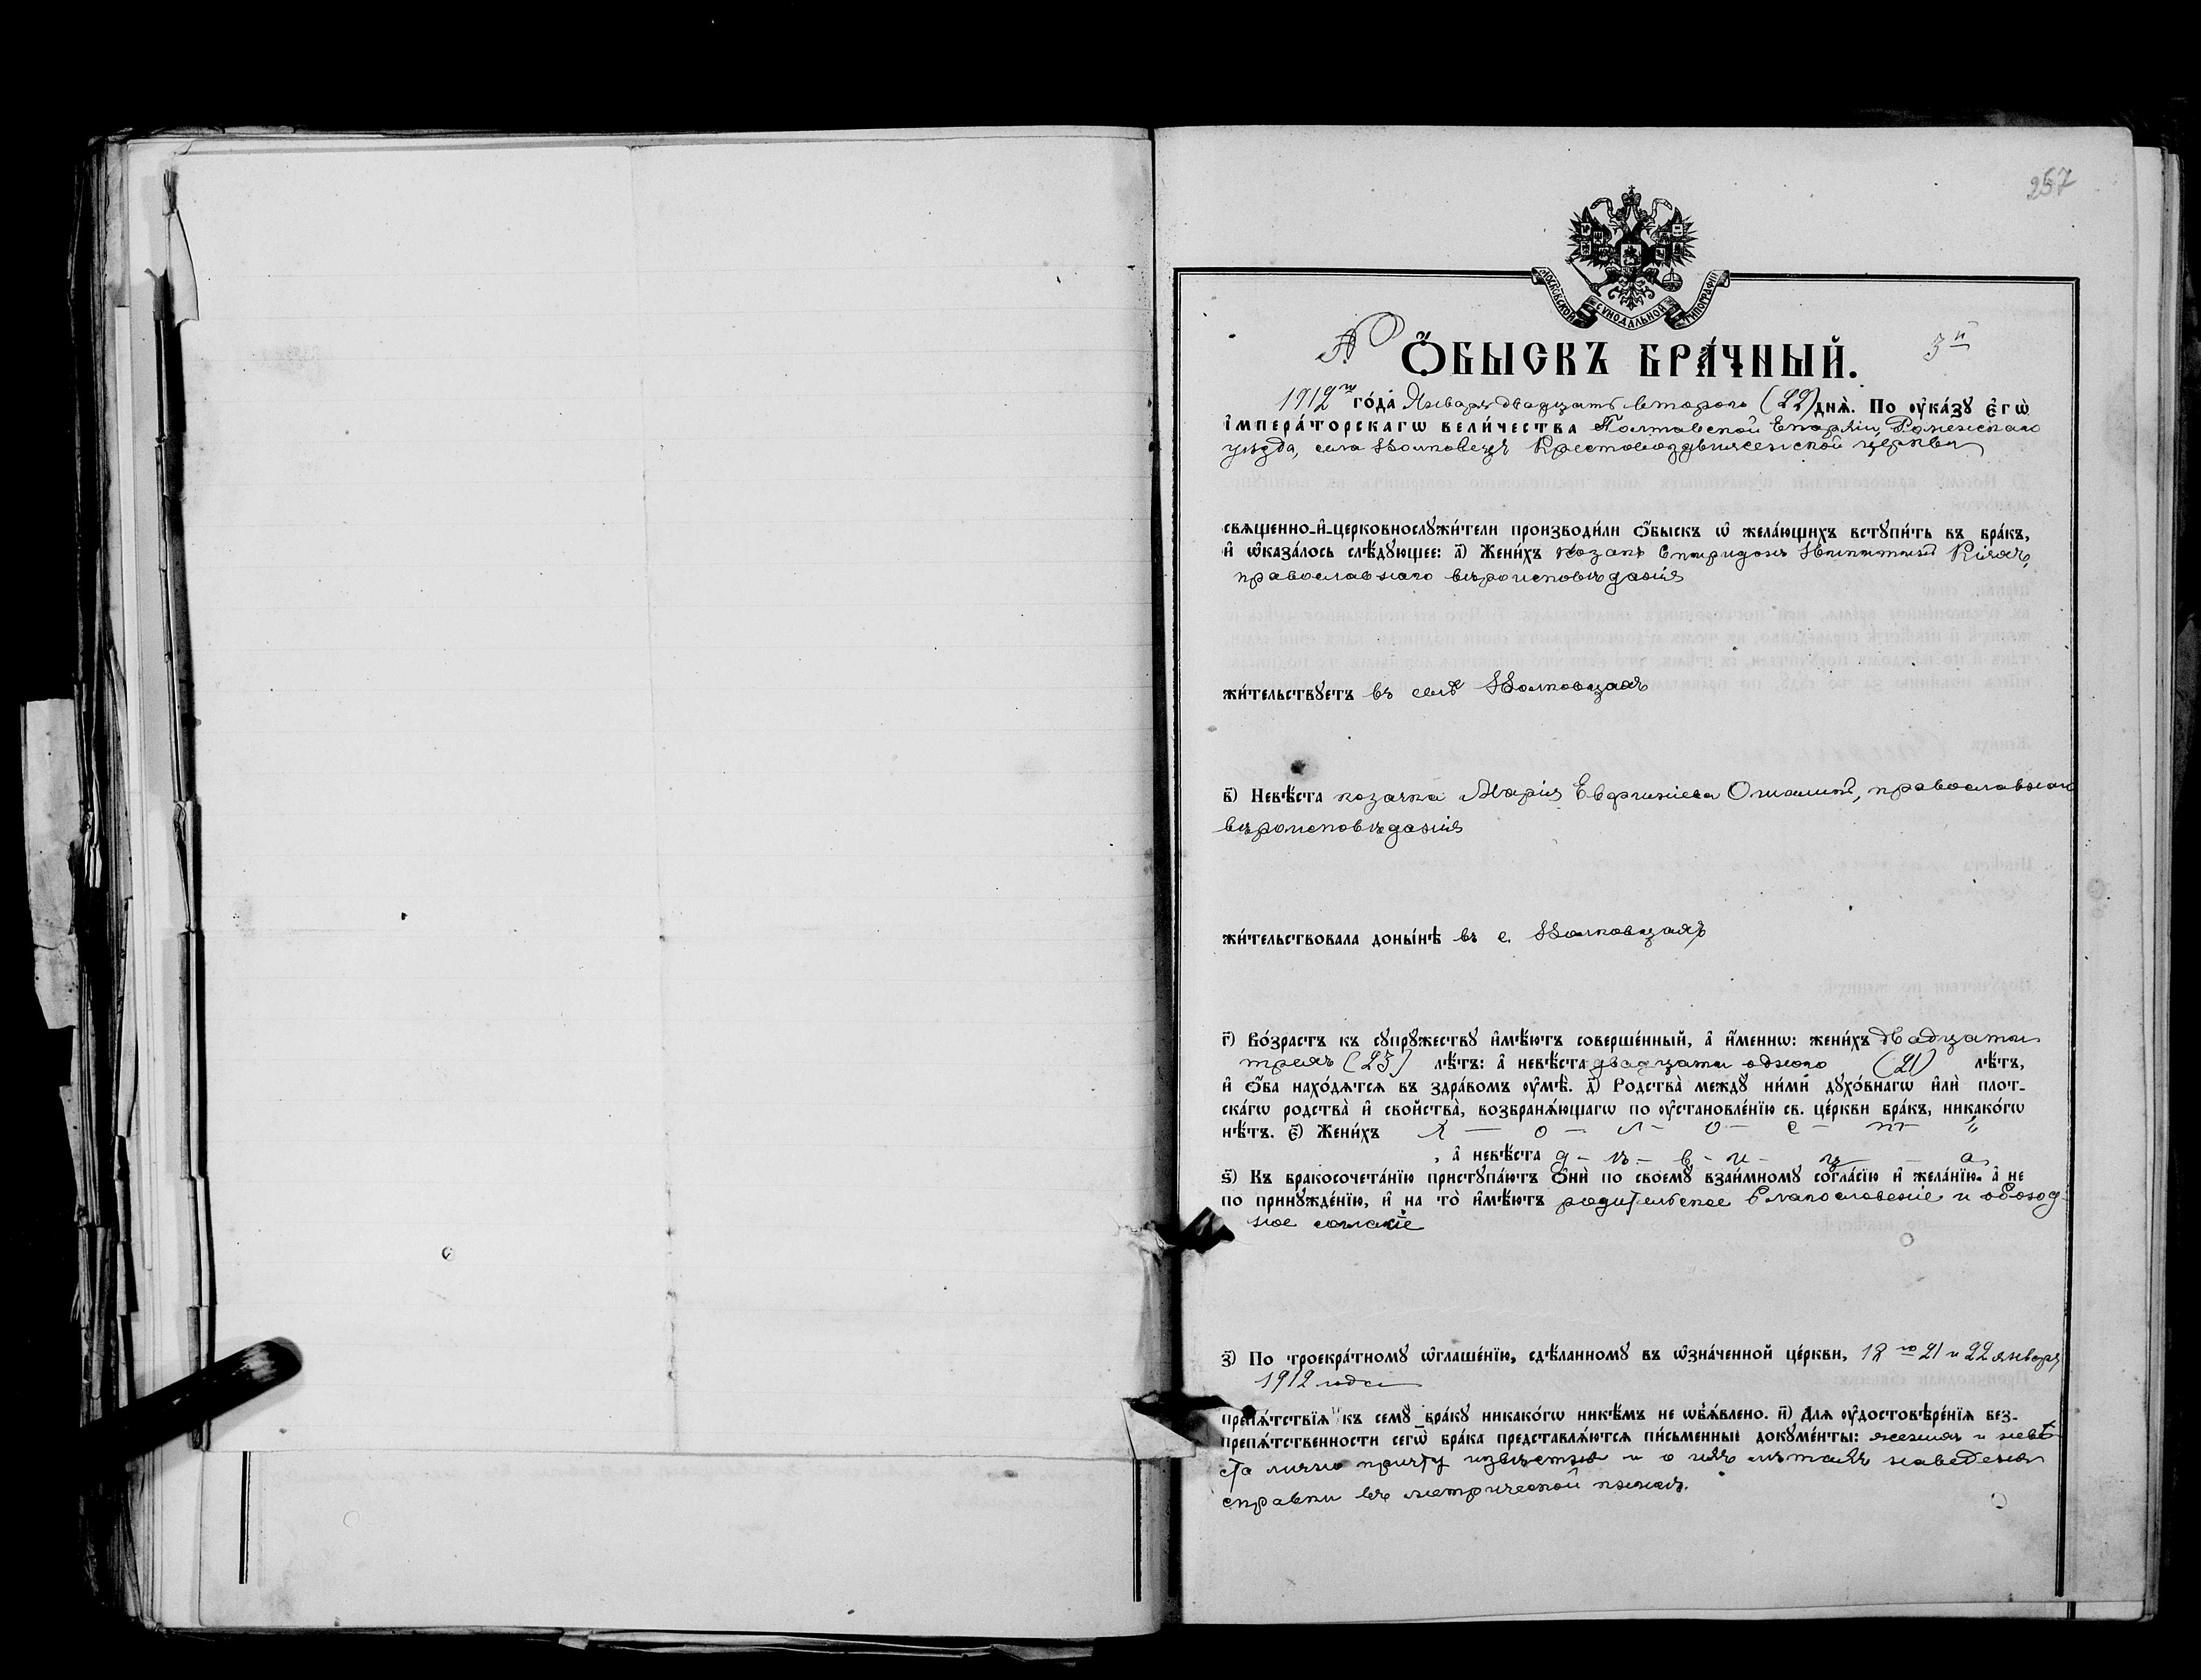 257
МОСКОВСКОЙ СѴНОДАЛЬНОЙ ТИПОГРАФІИ
Ѻ҆БЫСКЪ БРА́ЧНЫЙ. 3й
1912го го́да Января двадцать второго (22) дня̀. По ᲂу҆ка́зꙋ є҆гѡ̀
і҆мпера́торскагѡ вели́чества Полтавской Епархіи, Роменскаго
уѣзда, села Волковецъ Крестовоздвиженской церкви
свяще́нно-и҆-церковнослꙋжи́тели производи́ли ѻ҆́быскъ ѡ҆ жела́ющихъ встꙋпи́ть въ бра́къ,
и҆ ѡ҆каза́лось слѣ́дꙋющее: а҃) Жени́хъ козакъ Спиридонъ
православнаго вѣроисповѣданія
жи́тельствꙋетъ въ селѣ Волковцахъ
в҃) Невѣ́ста козачка Марія Евфиміева православнаго
вѣроисповѣданія
жи́тельствовала доны́нѣ въ с. Волковцахъ
г҃) Во́зрастъ къ сꙋпрꙋ́жествꙋ и҆мѣ́ютъ соверше́нный, а҆ и҆́меннѡ: жени́хъ двадцати
трехъ (23) лѣ́тъ: а҆ невѣ́ста двадцати одного (21) лѣ́тъ,
и҆ ѻ҆́ба нахо́дятся въ здра́вомъ ᲂу҆мѣ̀. д҃) Родства̀ междꙋ ни́ми дꙋхо́внагѡ и҆лѝ пло́т-
скагѡ родства̀ и҆ свойства̀, возбраня́ющагѡ по ᲂу҆становле́нїю св. це́ркви бра́къ, никако́гѡ
нѣ́тъ. є҃) Жени́хъ х — о — л — о — с — т ъ
, а҆ невѣ́ста д — ѣ — в — и — ц — а
ѕ҃) Къ бракосочета́нїю пристꙋпа́ютъ ѻ҆нѝ по своемꙋ̀ взаи́мномꙋ согла́сїю и҆ жела́нїю, а҆ не
по принꙋжде́нїю, и҆ на то̀ и҆мѣ́ютъ родительское благословеніе и обоюд-
ное согласіе
з҃) По троекра́тномꙋ ѡ҆глаше́нїю, сдѣ́ланномꙋ въ ѡ҆зна́ченной це́ркви, 18го 21 и 22 января
1912 года
препя́тствїя къ семꙋ̀ бра́кꙋ никако́гѡ никѣ́мъ не ѡ҆бъя́влено. и҃) Для ᲂу҆достовѣре́нїя без-
препя́тственности сегѡ̀ бра́ка представля́ются пи́сьменныѧ докꙋме́нты: женихъ и невѣ-
ста лично причту извѣстны и о ихъ лѣтахъ наведены
справки въ метрической книгѣ.